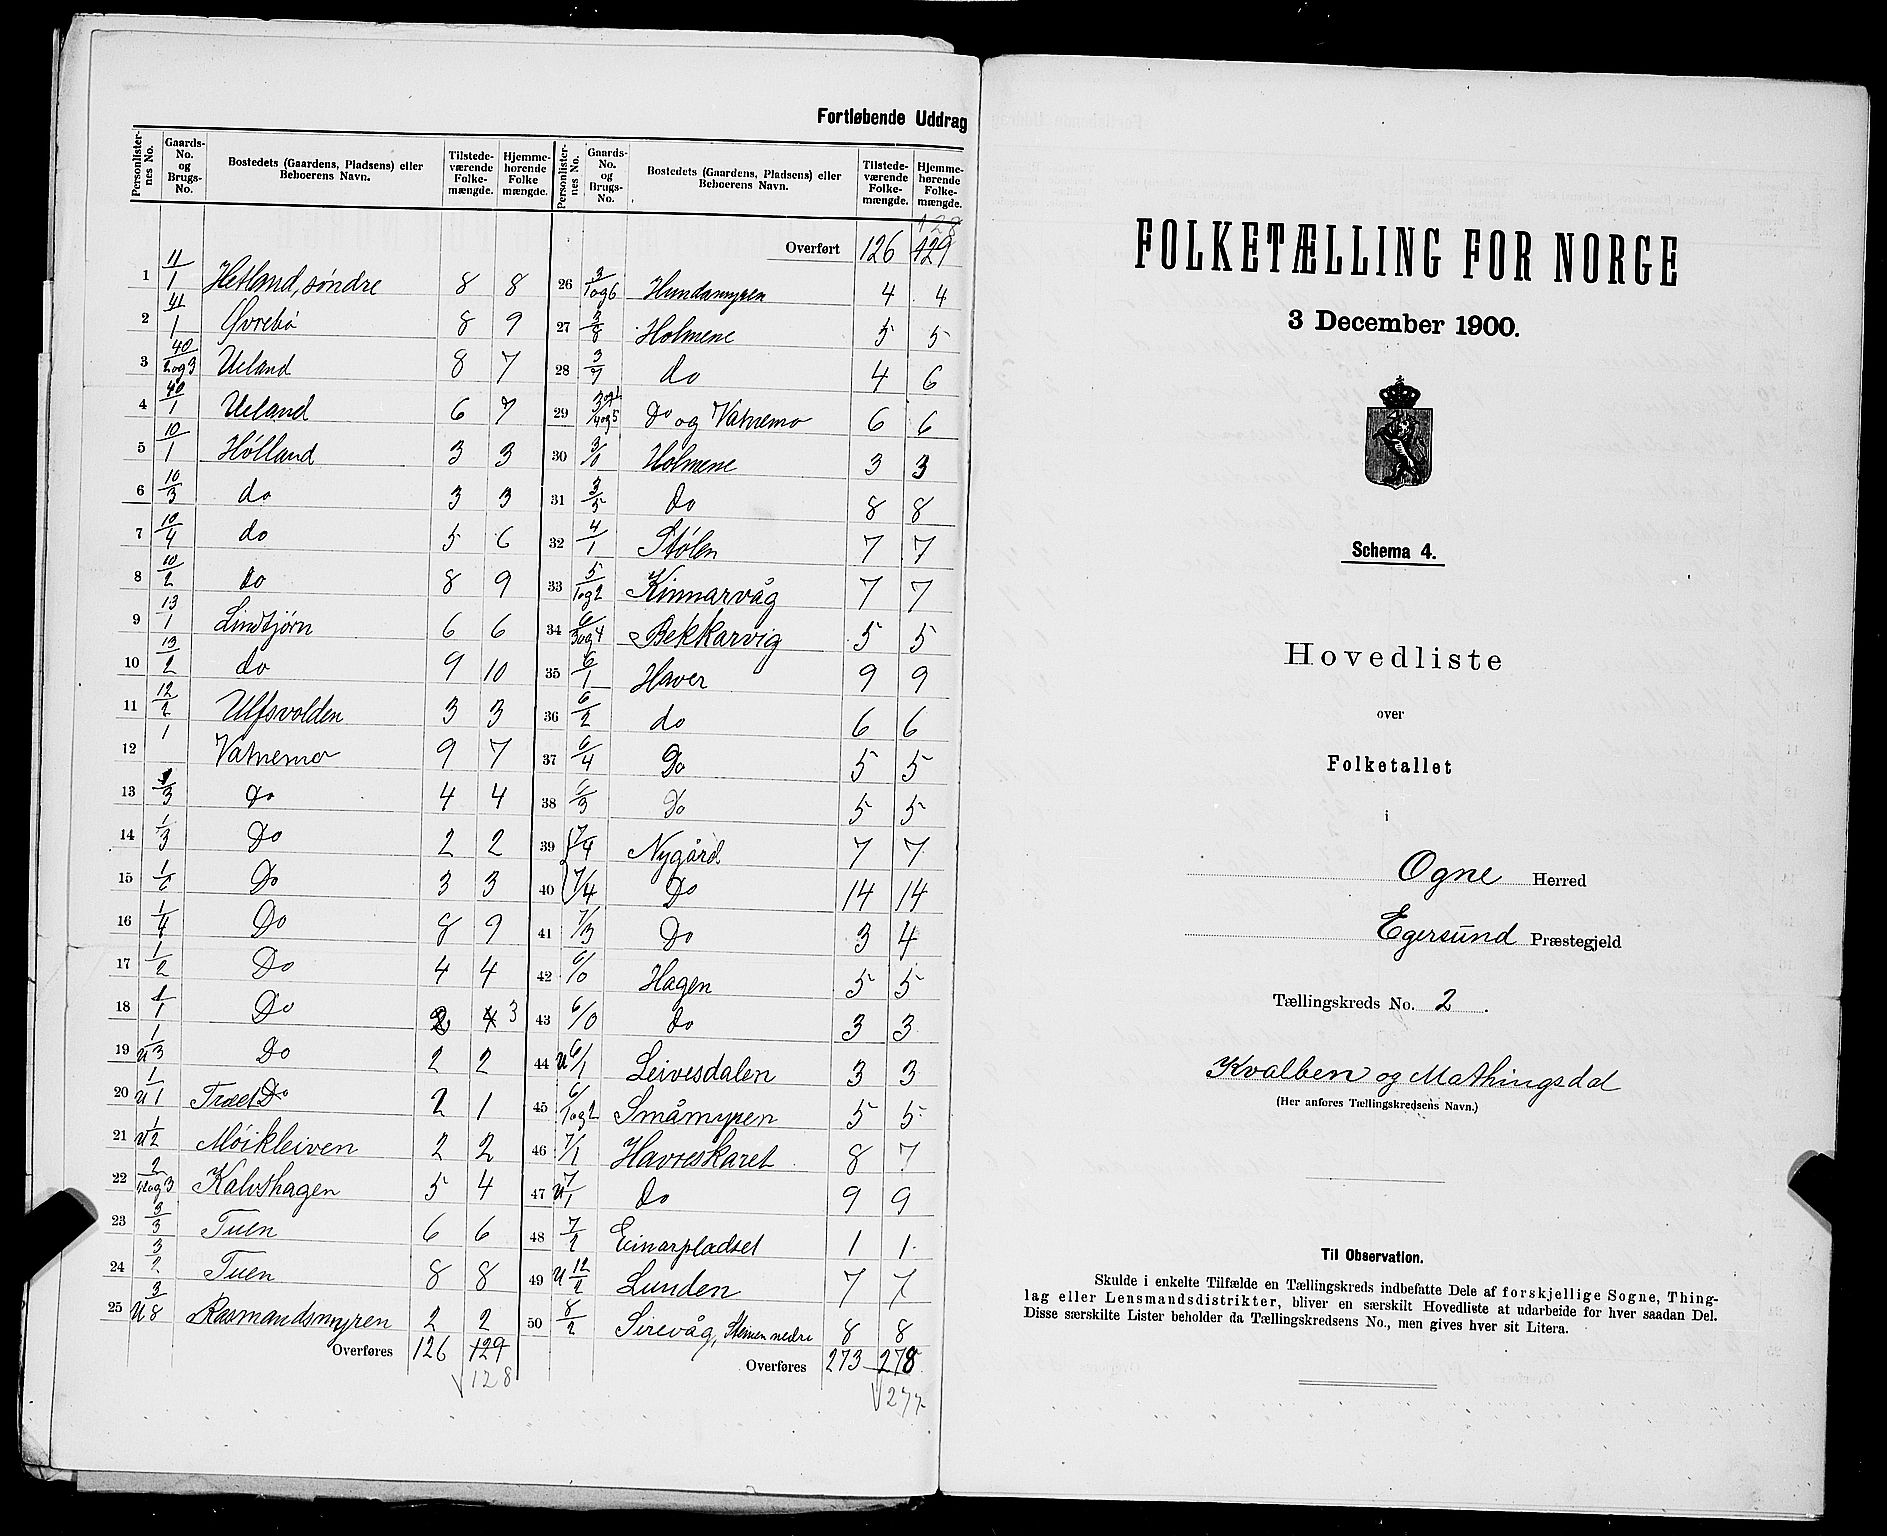 Fortløbende Uddrag
Personlister-nes No. Gaards-No. og Brugs-No. Bostedets (Gaardens, Pladsens) eller Beboerens Navn. Tilstede-værende Folke-mængde. Hjemme-hørende Folke mængde.
1 11/1 Hetland, søndre 8 8
2 41/1 Øvrebø 8 9
3 40/2og3 Ueland 8 7
4 40/1 Ueland 6 7
5 10/1 Hølland 3 3
6 10/3 do 3 3
7 10/4 do 5 6
8 10/2 do 8 9
9 13/1 Lindtjørn 6 6
10 13/2 do 9 10
11 12/2 Ulfsvolden 3 3
12 1 Vatnemo 9 7
13 1/3 Do 4 4
14 1/3 Do 2 2
15 Do 3 3
16 1/4 Do 8 9
17 1/2 Do 4 4
18 1/1 Do 2 4 3
19 U 1/3 Do 2 2
20 U 1/1 Træet Do 2 1
21 U 1/2 Møikleiven 2 2
22 Kalvshagen 5 4
23 3/3 Tuen 6 6
24 3/2 Tuen 8 8
25 U 3/8 Rasmandsmyren 2 2
Overføres 126 129
128
Personlister-nes No. Gaards-No. og Brugs-No. Bostedets (Gaardens, Pladsens) eller Beboerens Navn. Tilstede-værende Folke-mængde. Hjemme-hørende Folke-mængde.
128
Overført 126 129
26 3/1og6 Hundamyren 4 4
27 3/8 Holmene 5 5
28 3/7 do 4 6
29 Do og Vatnemo 6 6
30 3/10 Holmene 3 3
31 3/5 Do 8 8
32 4/1 Stølen 7 7
33 5/1og2 Kinnarvåg 7 7
34 6/3og4 Bekkarvig 5 5
35 6/1 Haver 9 9
36 6/2 do 6 6
37 6/4 Do 5 5
38 6/3 Do 5 5
39 7/4 Nygård 7 7
40 7/4 Do 14 14
41 7/3 Do 3 4
42 6/0 Hagen 5 5
43 6/0 do 3 3
44 U 6/1 Leivesdalen 3 3
45 6/1og2 Småmyren 5 5
46 7/1 Havreskaret 8 7
47 U 7/1 Do 9 9
48 7/2 Einarpladset 1 1
49 U 12/2 Lunden 7 7
50 8/2 Sirevåg, Stemen nedre 8 8
Overføres 273 278
277
FOLKETÆLLING FOR NORGE
3 December 1900.
Schema 4.
Hovedliste
over
Folketallet
i
Ogne Herred
Egersund Præstegjeld
Tællingskreds No. 2.
Kvalben og Mathingsdal
(Her anføres Tællingskredsens Navn.)
Til Observation.
Skulde i enkelte Tilfælde en Tællingskreds indbefatte Dele af forskjellige Sogne, Thing-
lag eller Lensmandsdistrikter, bliver en særskilt Hovedliste at udarbeide for hver saadan Del.
Disse særskilte Lister beholder da Tællingskredsens No., men gives hver sit Litera.